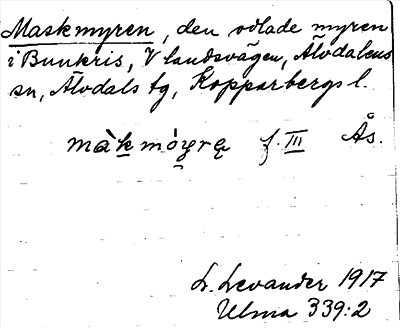 Maskmyren, den odlade myren
i Bunkris, V landsvägen, Älvdalens
sn, Älvdals tg, Kopparbergs l.
f. III Ås.
L. Levander 1917
Ulma 339:2